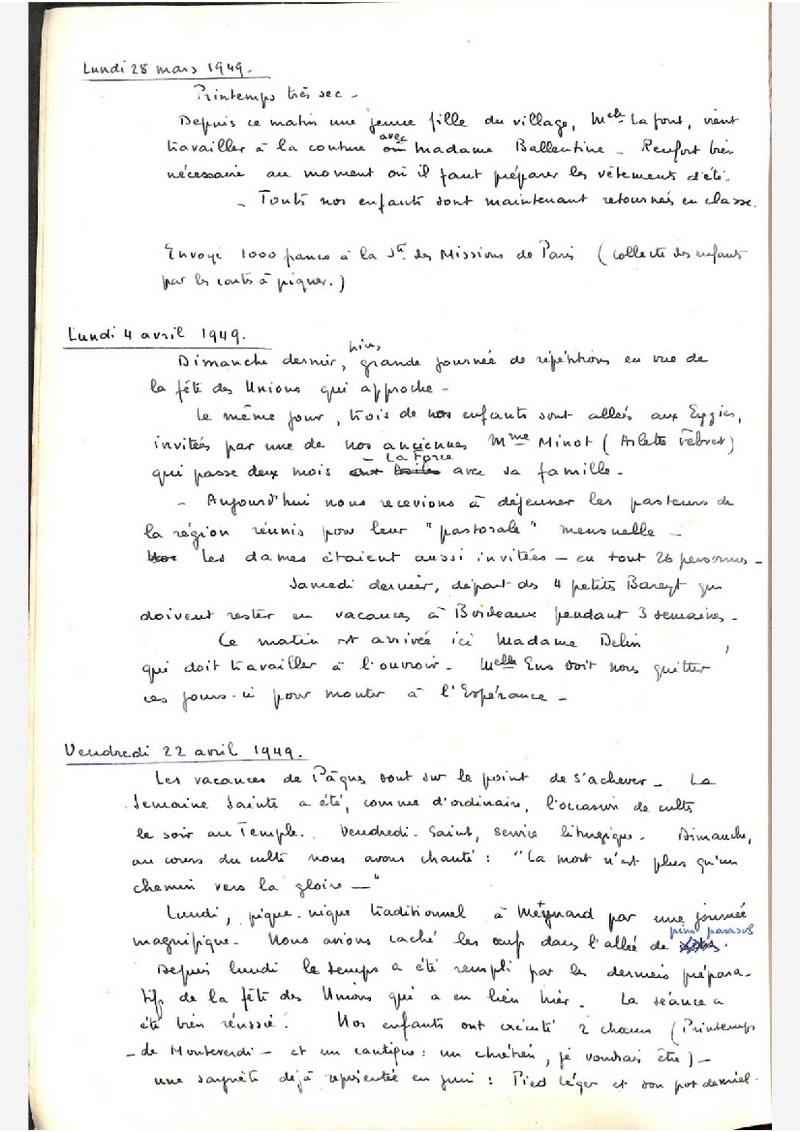 Lundi 28 mars 1949.
Printemps très sec -
Depuis ce matin une jeune fille du village, Melle Lafont, vient
avec
travailler à la couture madame Ballentine - Renfort bien
nécessaire au moment où il faut préparer les vêtements d'été.
- Touts nos enfants sont maintenant retournés en classe.
Envoyé 1000 francs à la Sté des Missions de Paris (collecte des enfants
par les carts à piquer.)
Lundi 4 avril 1949.
Dimanche dernier, grande journée de répétitions en vue de
la fête des Unions qui approche -
Le même jour, trois de nos enfants sont allées aux Eyzies,
invitées par une de nos anciennes Mme Minot (Arlette Febvret)
- La Force
qui passe deux mois avec sa famille -
- Aujourd'hui nous recevions à déjeuner les pasteurs de
la région réunis pour leur "pastorale" mensuelle -
Les dames étaient aussi invitées - en tout 26 personnes -
Samedi dernier, départ des 4 petits Bareyt qui
doivent rester en vacances à Bordeaux pendant 3 semaines -
Ce matin est arrivée ici Madame Belin
qui doit travailler à l'ouvroir - Melle Ens doit nous quitter
ces jours-ci pour monter à l'Espérance -
Vendredi 22 avril 1949.
Les vacances de Pâques sont sur le point de s'achever - La
Semaine Sainte a été, comme d'ordinaire, l'occasion de cults
le soir au Temple. Vendredi-Saint, service liturgique. Dimanche,
au cours du culte nous avons chanté : "La mort n'est plus qu'un
chemin vers la gloire -"
Lundi, pique-nique traditionnel à Meynard par une journée
pins parasols
magnifique - Nous avions caché les œufs dans l'allée de
Depuis lundi le temps a été rempli par les derniers prépara-
tifs de la fête des Unions qui a eu lieu hier. La séance a
été bien réussie. Nos enfants ont exécuté 2 chœurs (Printemps
- de Monteverdi - et un cantique : un chrétien, je voudrais être) -
une saynète déjà représentée en juin : Pied léger et son pot de miel.